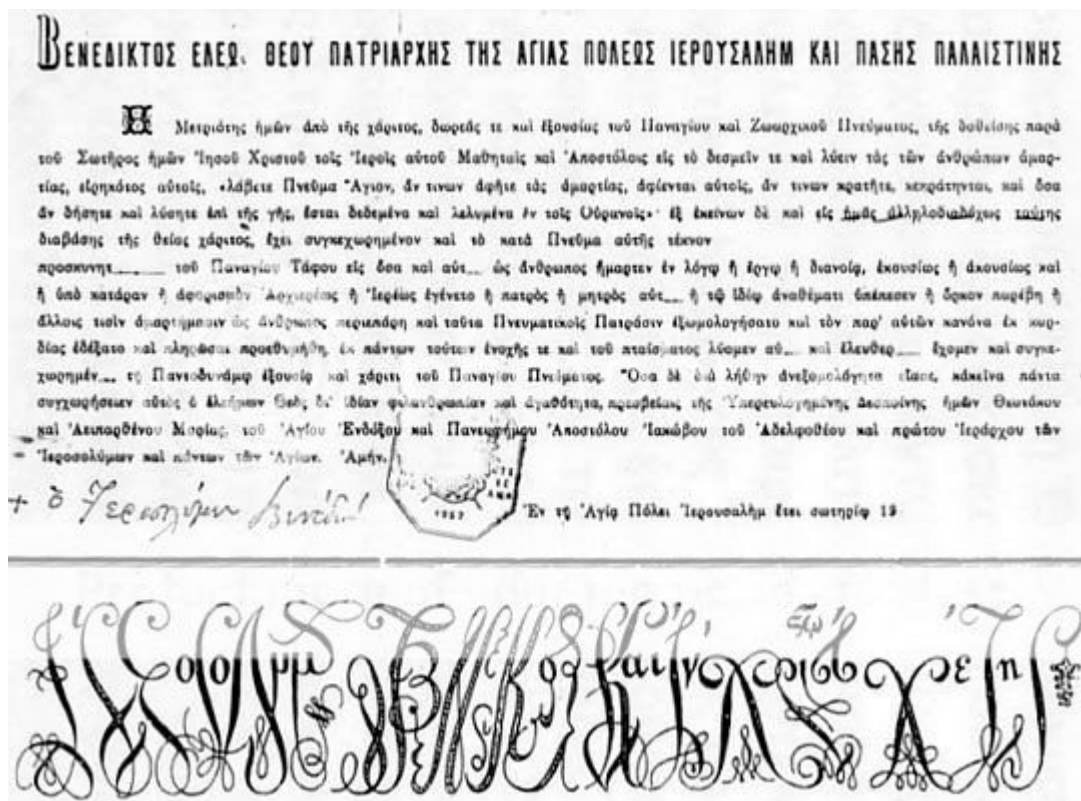 ΒΕΝΕΔΙΚΤΟΣ ΕΛΕΩ. ΘΕΟΥ ΠΑΤΡΙΑΡΧΗΣ ΤΗΣ ΑΓΙΑΣ ΠΟΛΕΩΣ ΙΕΡΟΥΣΑΛΗΜ ΚΑΙ ΠΑΣΗΣ ΠΑΛΑΙΣΤΙΝΗΣ
Η Μετριότης ἡμῶν ἀπὸ τῆς χάριτος, δωρεᾶς τε καὶ ἐξουσίας τοῦ Παναγίου καὶ Ζωαρχικοῦ Πνεύματος, τῆς δοθείσης παρὰ
τοῦ Σωτῆρος ἡμῶν Ἰησοῦ Χριστοῦ τοῖς Ἱεροῖς αὐτοῦ Μαθηταῖς καὶ Ἀποστόλοις εἰς τὸ δεσμεῖν τε καὶ λύειν τὰς τῶν ἀνθρώπων ἁμαρ-
τίας, εἰρηκότος αὐτοῖς, «λάβετε Πνεῦμα Ἅγιον, ἄν τινων ἀφῆτε τὰς ἁμαρτίας, ἀφίενται αὐτοῖς, ἄν τινων κρατῆτε, κεκράτηνται, καὶ ὅσα
ἂν δήσητε καὶ λύσητε ἐπὶ τῆς γῆς, ἔσται δεδεμένα καὶ λελυμένα ἐν τοῖς Οὐρανοῖς»· ἐξ ἐκείνων δὲ καὶ εἰς ἡμᾶς ἀλληλοδιαδόχως ταύτης
διαβάσης τῆς θείας χάριτος, ἔχει συγκεχωρημένον καὶ τὸ κατὰ Πνεῦμα αὐτῆς τέκνον
προσκυνητ____ τοῦ Παναγίου Τάφου εἰς ὅσα καὶ αὐτ__ ὡς ἄνθρωπος ἥμαρτεν ἐν λόγῳ ἢ ἔργῳ ἢ διανοίᾳ, ἑκουσίως ἢ ἀκουσίως καὶ
ἢ ὑπὸ κατάραν ἢ ἀφορισμὸν Ἀρχιερέως ἢ Ἱερέως ἐγένετο ἢ πατρὸς ἢ μητρὸς αὐτ__ ἢ τῷ ἰδίῳ ἀναθέματι ὑπέπεσεν ἢ ὅρκον παρέβη ἢ
ἄλλοις τισὶν ἁμαρτήμασιν ὡς ἄνθρωπος περιεπάρη καὶ ταῦτα Πνευματικοῖς Πατράσιν ἐξωμολογήσατο καὶ τὸν παρ' αὐτῶν κανόνα ἐκ καρ-
δίας ἐδέξατο καὶ πληρῶσαι προεθυμήθη, ἐκ πάντων τούτων ἐνοχῆς τε καὶ τοῦ πταίσματος λύομεν αὐ__ καὶ ἐλευθερ___ ἔχομεν καὶ συγκε-
χωρημέν__ τῇ Παντοδυνάμῳ ἐξουσίᾳ καὶ χάριτι τοῦ Παναγίου Πνεύματος. Ὅσα δὲ διὰ λήθην ἀνεξομολόγητα εἴασε, κἀκεῖνα πάντα
συγχωρήσειεν αὐτῷ ὁ ἐλεήμων Θεὸς δι' ἰδίαν φιλανθρωπίαν καὶ ἀγαθότητα, πρεσβείαις τῆς Ὑπερευλογημένης Δεσποίνης ἡμῶν Θεοτόκου
καὶ Ἀειπαρθένου Μαρίας, τοῦ Ἁγίου Ἐνδόξου καὶ Πανευφήμου Ἀποστόλου Ἰακώβου τοῦ Ἀδελφοθέου καὶ πρώτου Ἱεράρχου τῶν
Ἱεροσολύμων καὶ πάντων τῶν Ἁγίων. Ἀμήν.
Ἐν τῇ Ἁγίᾳ Πόλει Ἱερουσαλὴμ ἔτει σωτηρίῳ 19